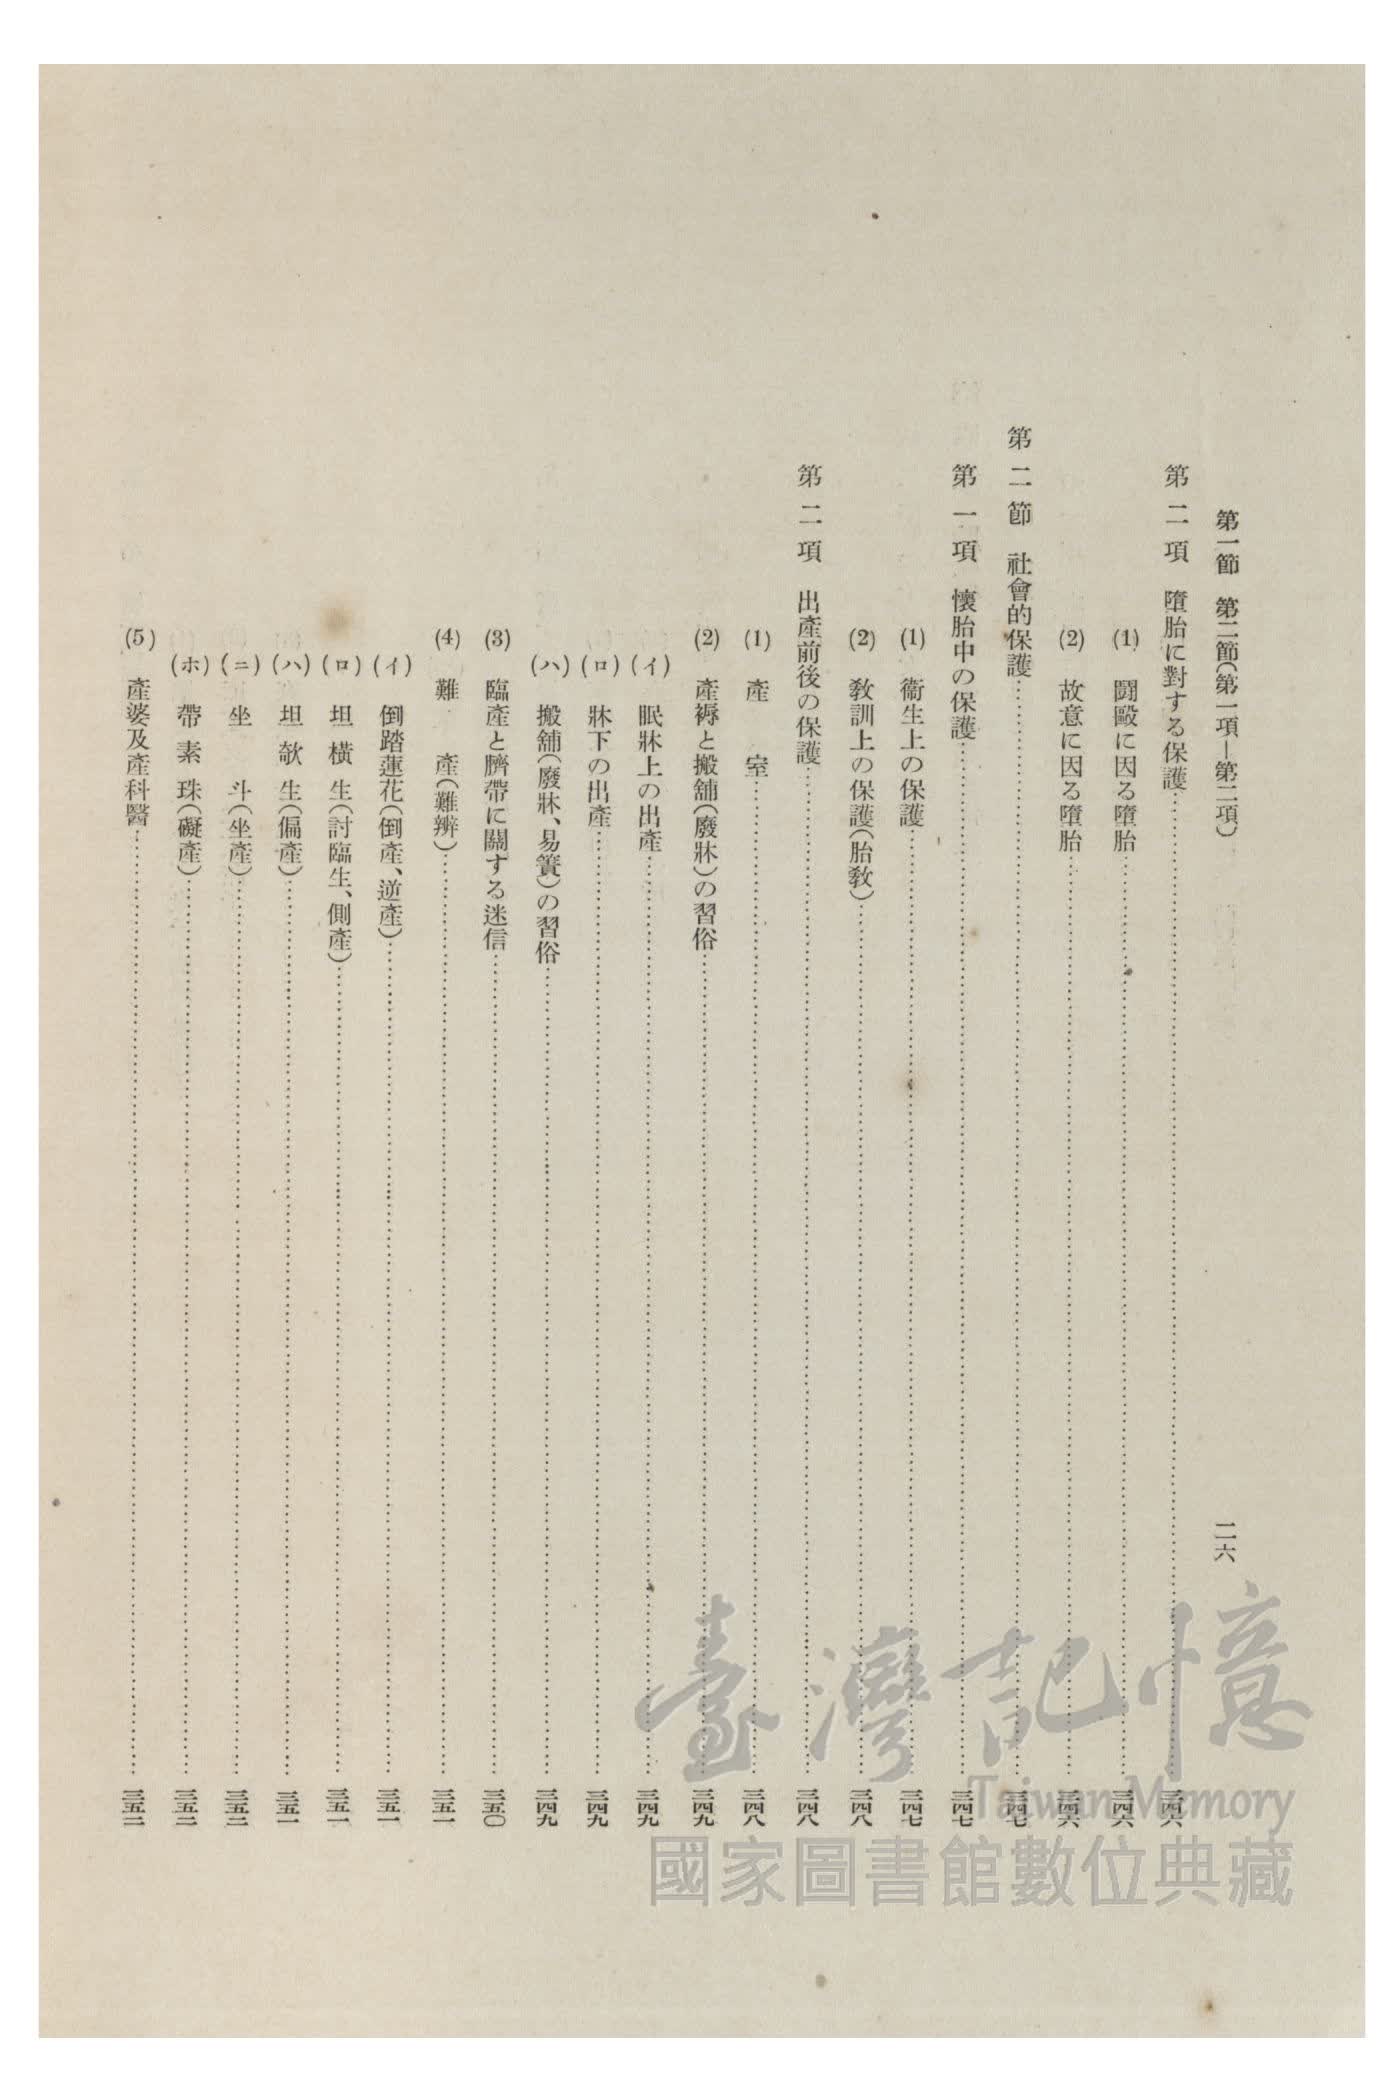 第一節　第二節(第一項—第二項)　二六
第二項　墮胎に對する保護……三四六
(1)　鬪毆に因る墮胎……三四六
(2)　故意に因る墮胎……三四六
第二節　社會的保護……三四七
第一項　懷胎中の保護……三四七
(1)　衞生上の保護……三四七
(2)　敎訓上の保護(胎敎)……三四八
第二項　出產前後の保護……三四八
(1)　產室……三四八
(2)　產褥と搬舖(廢牀)の習俗……三四九
(イ)　眠牀上の出產……三四九
(ロ)　牀下の出產……三四九
(ハ)　搬舖(廢牀、易簀)の習俗……三四九
(3)　臨產と臍帶に關する迷信……三五〇
(4)　難產(難辨)……三五一
(イ)　倒踏蓮花(倒產、逆產)……三五一
(ロ)　坦橫生(討臨生、側產)……三五一
(ハ)　坦欹生(偏產)……三五一
(ニ)　坐斗(坐產)……三五二
(ホ)　帶素珠(礙產)……三五二
(5)　產婆及產科醫……三五二
臺灣記憶
Taiwan Memory
國家圖書館數位典藏